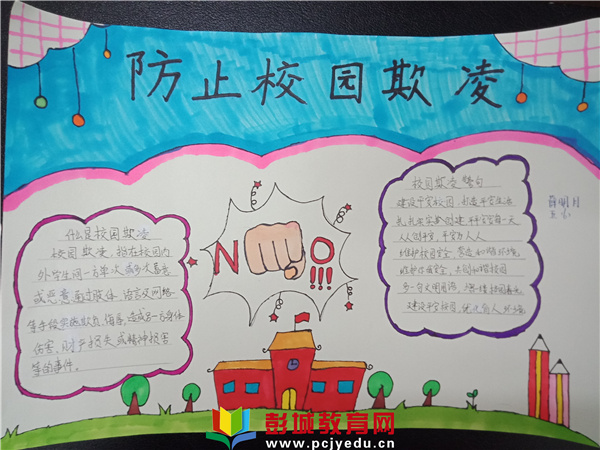 防止校园欺凌
什么是校园欺凌
校园欺凌,指在校园内
外学生间一方单次或多次蓄意
或恶意通过肢体、语言及网络
等手段实施欺负、侮辱,造成另一方身体
伤害、财产损失或精神损害
等的事件。
NO!!!
校园欺凌警句
建设平安校园,
扎扎实实创建 平安每一天
人人创平安,平安为人人
维护校园安全 营造和谐环境
维护校园安全,共创和谐校园
多一句文明用语,
建设平安校园,
彭城教育网
www.pcjyedu.cn